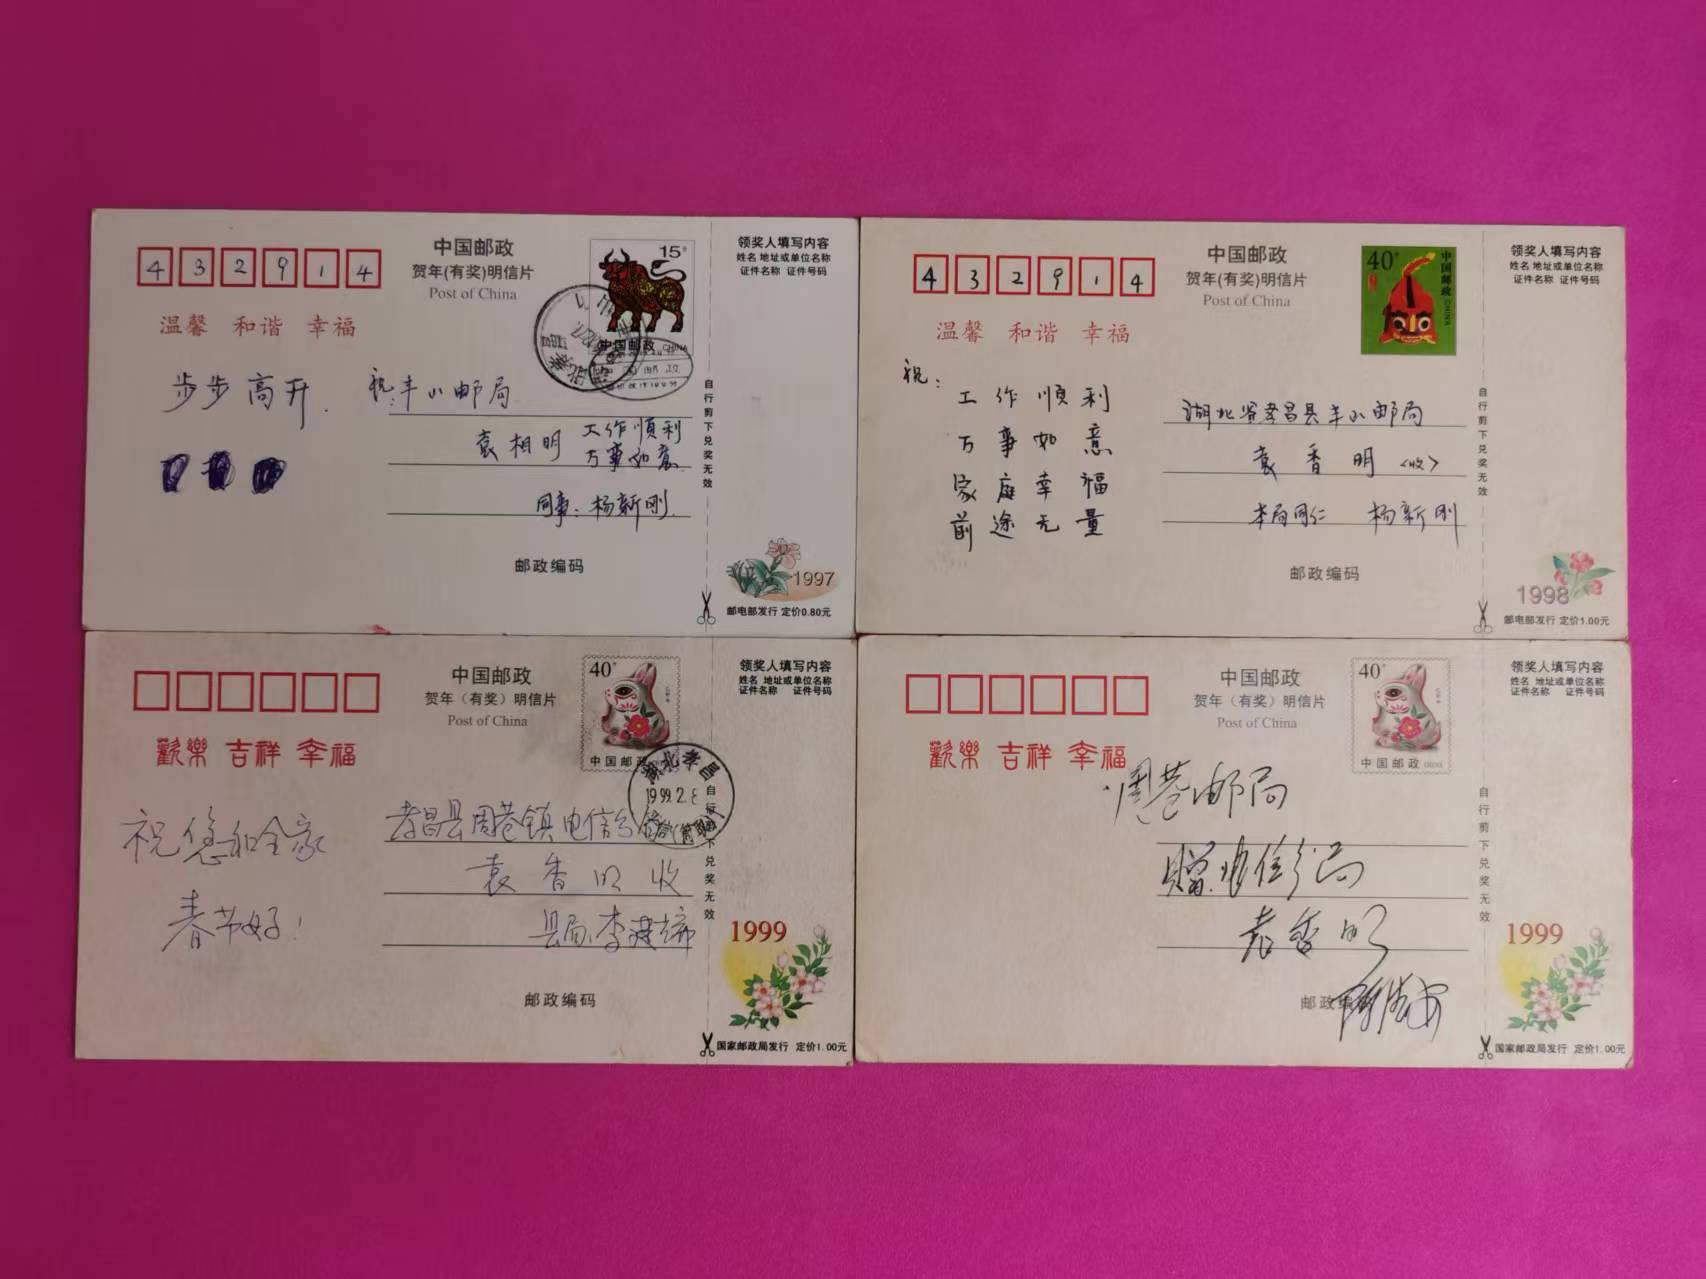 432914
中国邮政
贺年(有奖)明信片
Post of China
15分
中国邮政 CHINA
领奖人填写内容
姓名 地址或单位名称
证件名称 证件号码
温馨 和谐 幸福
步步高升
祝:丰山邮局
袁相明 工作顺利
万事如意
同事:杨新刚
自行剪下兑奖无效
邮政编码
1997
邮电部发行 定价0.80元
432914
中国邮政
贺年(有奖)明信片
Post of China
40分
中国邮政 CHINA
领奖人填写内容
姓名 地址或单位名称
证件名称 证件号码
温馨 和谐 幸福
祝:
工作顺利
万事如意
家庭幸福
前途无量
湖北省孝昌县丰山邮局
袁香明 <收>
本局同仁 杨新刚
自行剪下兑奖无效
邮政编码
1998
邮电部发行 定价1.00元
中国邮政
贺年(有奖)明信片
Post of China
40分
中国邮政
领奖人填写内容
姓名 地址或单位名称
证件名称 证件号码
歡樂 吉祥 幸福
湖北孝昌
1999.2.8
祝您和全家
春节好!
孝昌县周巷镇电信分局
袁香明收
县局
自行剪下兑奖无效
邮政编码
1999
国家邮政局发行 定价1.00元
中国邮政
贺年(有奖)明信片
Post of China
40分
中国邮政
领奖人填写内容
姓名 地址或单位名称
证件名称 证件号码
歡樂 吉祥 幸福
周巷邮局
赠电信分局
袁香明
自行剪下兑奖无效
邮政编码
1999
国家邮政局发行 定价1.00元